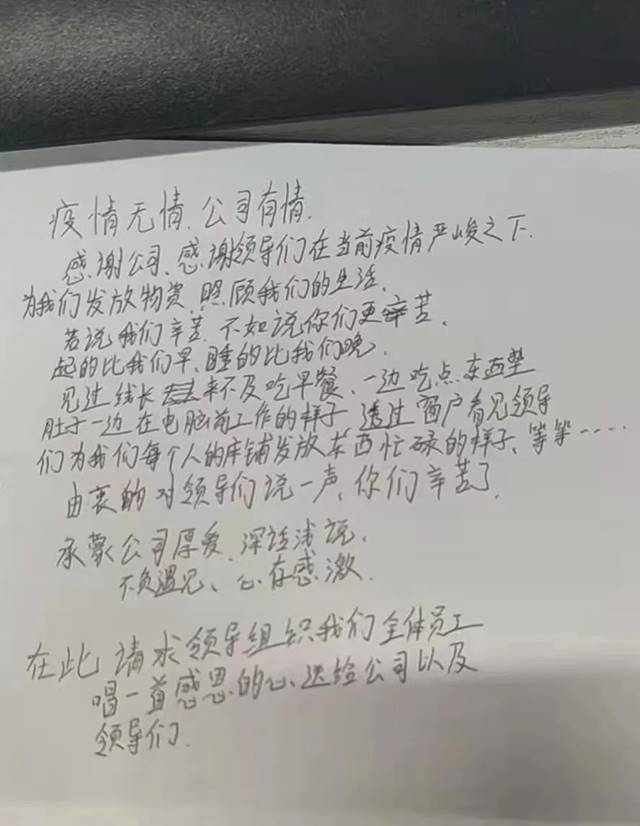 疫情无情.公司有情.
感谢公司、感谢领导们在当前疫情严峻之下.
为我们发放物资.照顾我们的生活.
若说我们辛苦.不如说你们更辛苦.
起的比我们早、睡的比我们晚.
见过线长来不及吃早餐、一边吃点东西垫
肚子一边在电脑前工作的样子,透过窗户看见领导
们为我们每个人的床铺发放东西忙碌的样子、等等……
由衷的对领导们说一声、你们辛苦了.
承蒙公司厚爱.深话浅说.
不负遇见、心存感激.
在此请求领导组织我们全体员工
唱一首感恩的心送给公司以及
领导们.